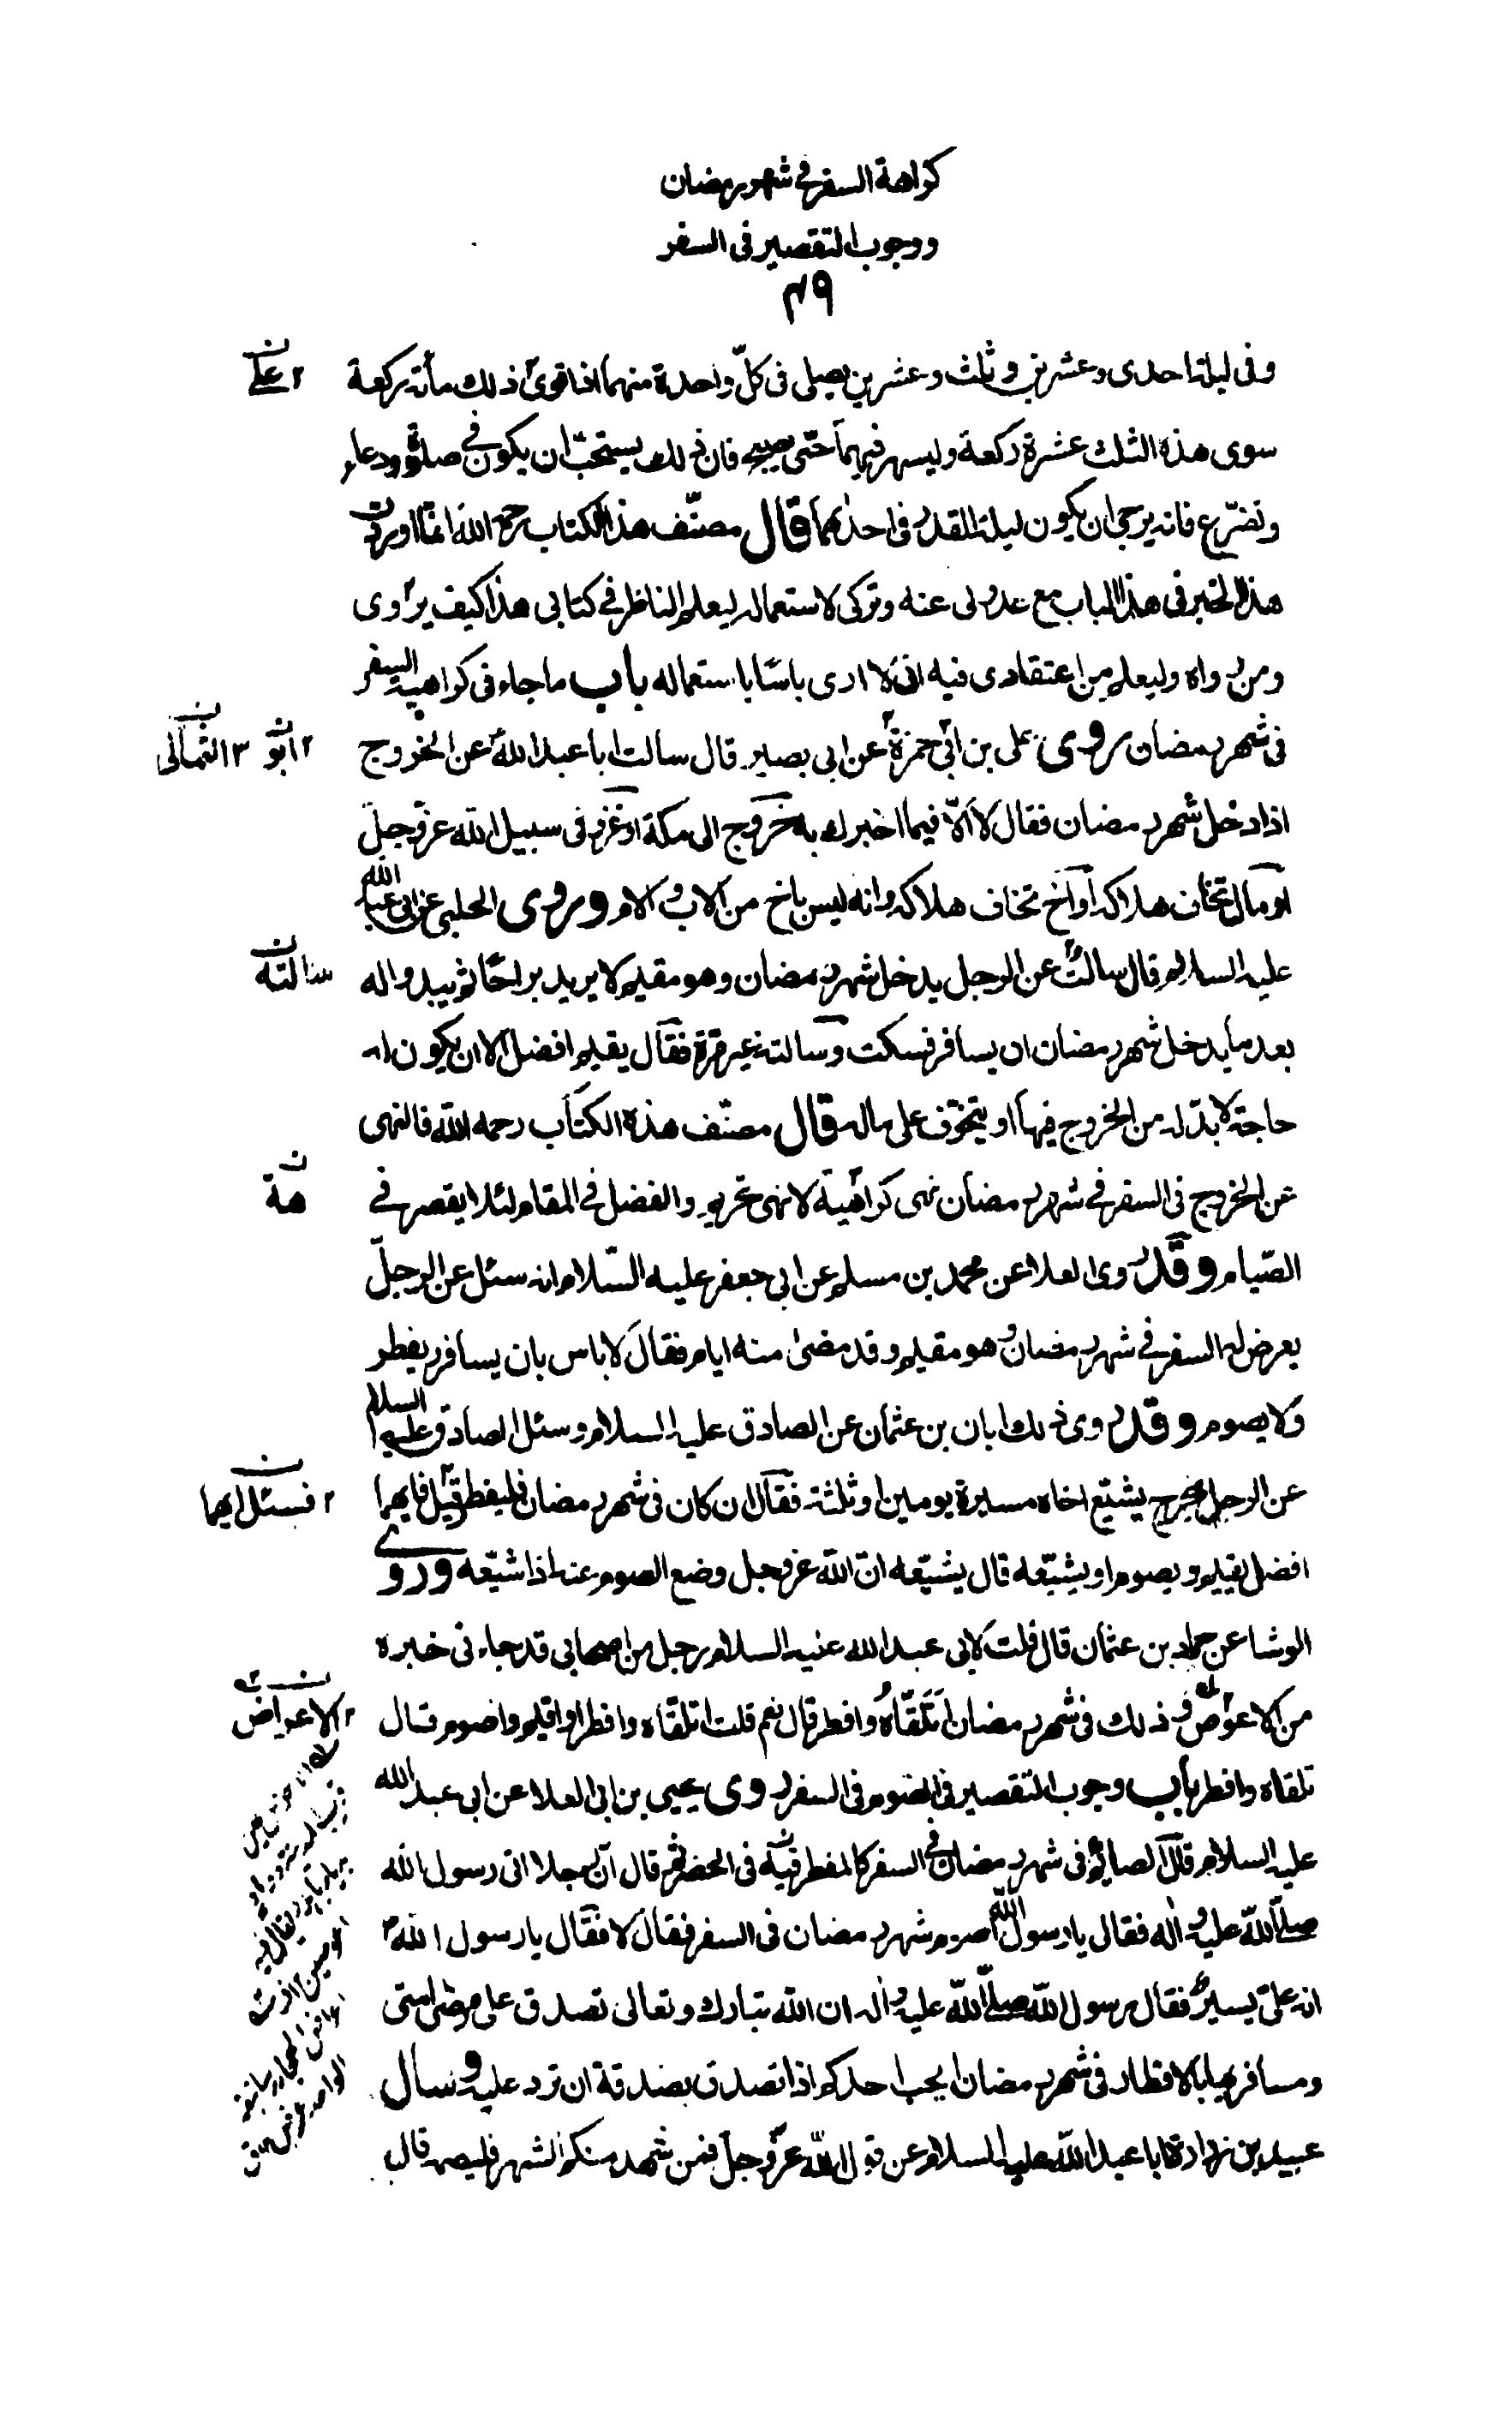 كراهة السفر فى شهر رمضان
ووجوب التقصير فى السفر
٤٩
وفى ليلة احدى وعشرين وثلث وعشرين يصلى فى كلّ واحدة منهما اذا قوى ذلك مأته ركعة
على
سوى هذه الثلث عشرة ركعة وليسهر فيهما حتّى يصبح فان ذلك يستحبّ ان يكون فى صلوة ودعاء
وتضرّع فانه يرجى ان يكون ليلة القدر فى احدٰهما قال مصنّف هذا الكتاب رحمه الله انمّا اوردت
هذا الخبر فى هذا الباب مع عدولى عنه وتركى لاستعماله ليعلم الناظر فى كتابى هذا كيف يروى
ومن رواه وليعلم من اعتقادى فيه انّى لا ارى باسًا باستعماله باب ما جاء فى كراهية السفر
فى شهر رمضان روى على بن ابى حمزة عن ابى بصير قال سالت ابا عبد الله ع عن الخروج
٢ ابو ٣ الثمالى
اذا دخل شهر رمضان فقال لا الّا فيما اخبرك به خروج الى مكة او غزو فى سبيل الله عزّوجلّ
او مال تخاف هلاكه او اخ تخاف هلاكه وانه ليس باخ من الاب والام وروى الحلبى عن ابى عبد الله
عليه السلام قال سالته عن الرجل يدخل شهر رمضان وهو مقيم لا يريد براحًا ثم يبدو له
سالته
بعد ما يدخل شهر رمضان ان يسافر فسكت وسالته غير مرّة فقال يقيم افضل الا ان يكون له
حاجة لا بدّ له من الخروج فيها او يتخوّف على ماله قال مصنّف هذه الكتاب رحمه الله فالنهى
عن الخروج فى السفر فى شهر رمضان نهى كراهية لا نهى تحريم والفضل فى المقام لئلا يقصر فى
هة
الصّيام وقد روى العلا عن محمد بن مسلم عن ابى جعفر عليه السّلام انه سئل عن الرجل
يعرض له السفر فى شهر رمضان وهو مقيم وقد مضىٰ منه ايام فقال لا باس بان يسافر ويفطر
ولا يصوم وقد روى ذلك ابان بن عثمان عن الصادق عليه السلام وسئل الصادق عليه السلام
عن الرجل يخرج يشيّع اخاه مسيرة يومين او ثلثة فقال ان كان فى شهر رمضان فليفطر قيل فايهما
٢ فسئل ايهما
افضل يقيم ويصوم او يشيّعه قال يشيّعه انّ الله عزوجل وضع الصوم عنه اذا شيّعه وروى
الوشا عن حماد بن عثمان قال قلت لابى عبد الله عليه السلام رجل من اصحابى قد جاءنى خبره
من الاعوص وذلك فى شهر رمضان اَتَلَقّاهُ وافطر قال نعم قلت اتلقاه وافطر او اقيم واصوم قال
٢ الاعراض
تلقاه وافطر باب وجوب التقصير فى الصوم فى السفر روى يحيى بن ابى العلا عن ابى عبد الله
عليه السلام قال الصائم فى شهر رمضان فى السفر كالمفطر فيه فى الحضر ثم قال انّ رجلا اتى رسول الله
صلّى الله عليه واٰله فقال يا رسول الله اصوم شهر رمضان فى السفر فقال لا فقال يا رسول الله
انه علىّ يسير فقال رسول الله صلّى الله عليه واٰله ان الله تبارك وتعالى تصدق على مرضى امتى
ومسافريها بالافطار فى شهر رمضان ايحب احدكم اذا تصدق بصدقة ان ترد عليه وسال
عبيد بن زرارة ابا عبد الله عليه السلام عن قول الله عزّوجلّ فمن شهد منكم الشهر فليصمه قال